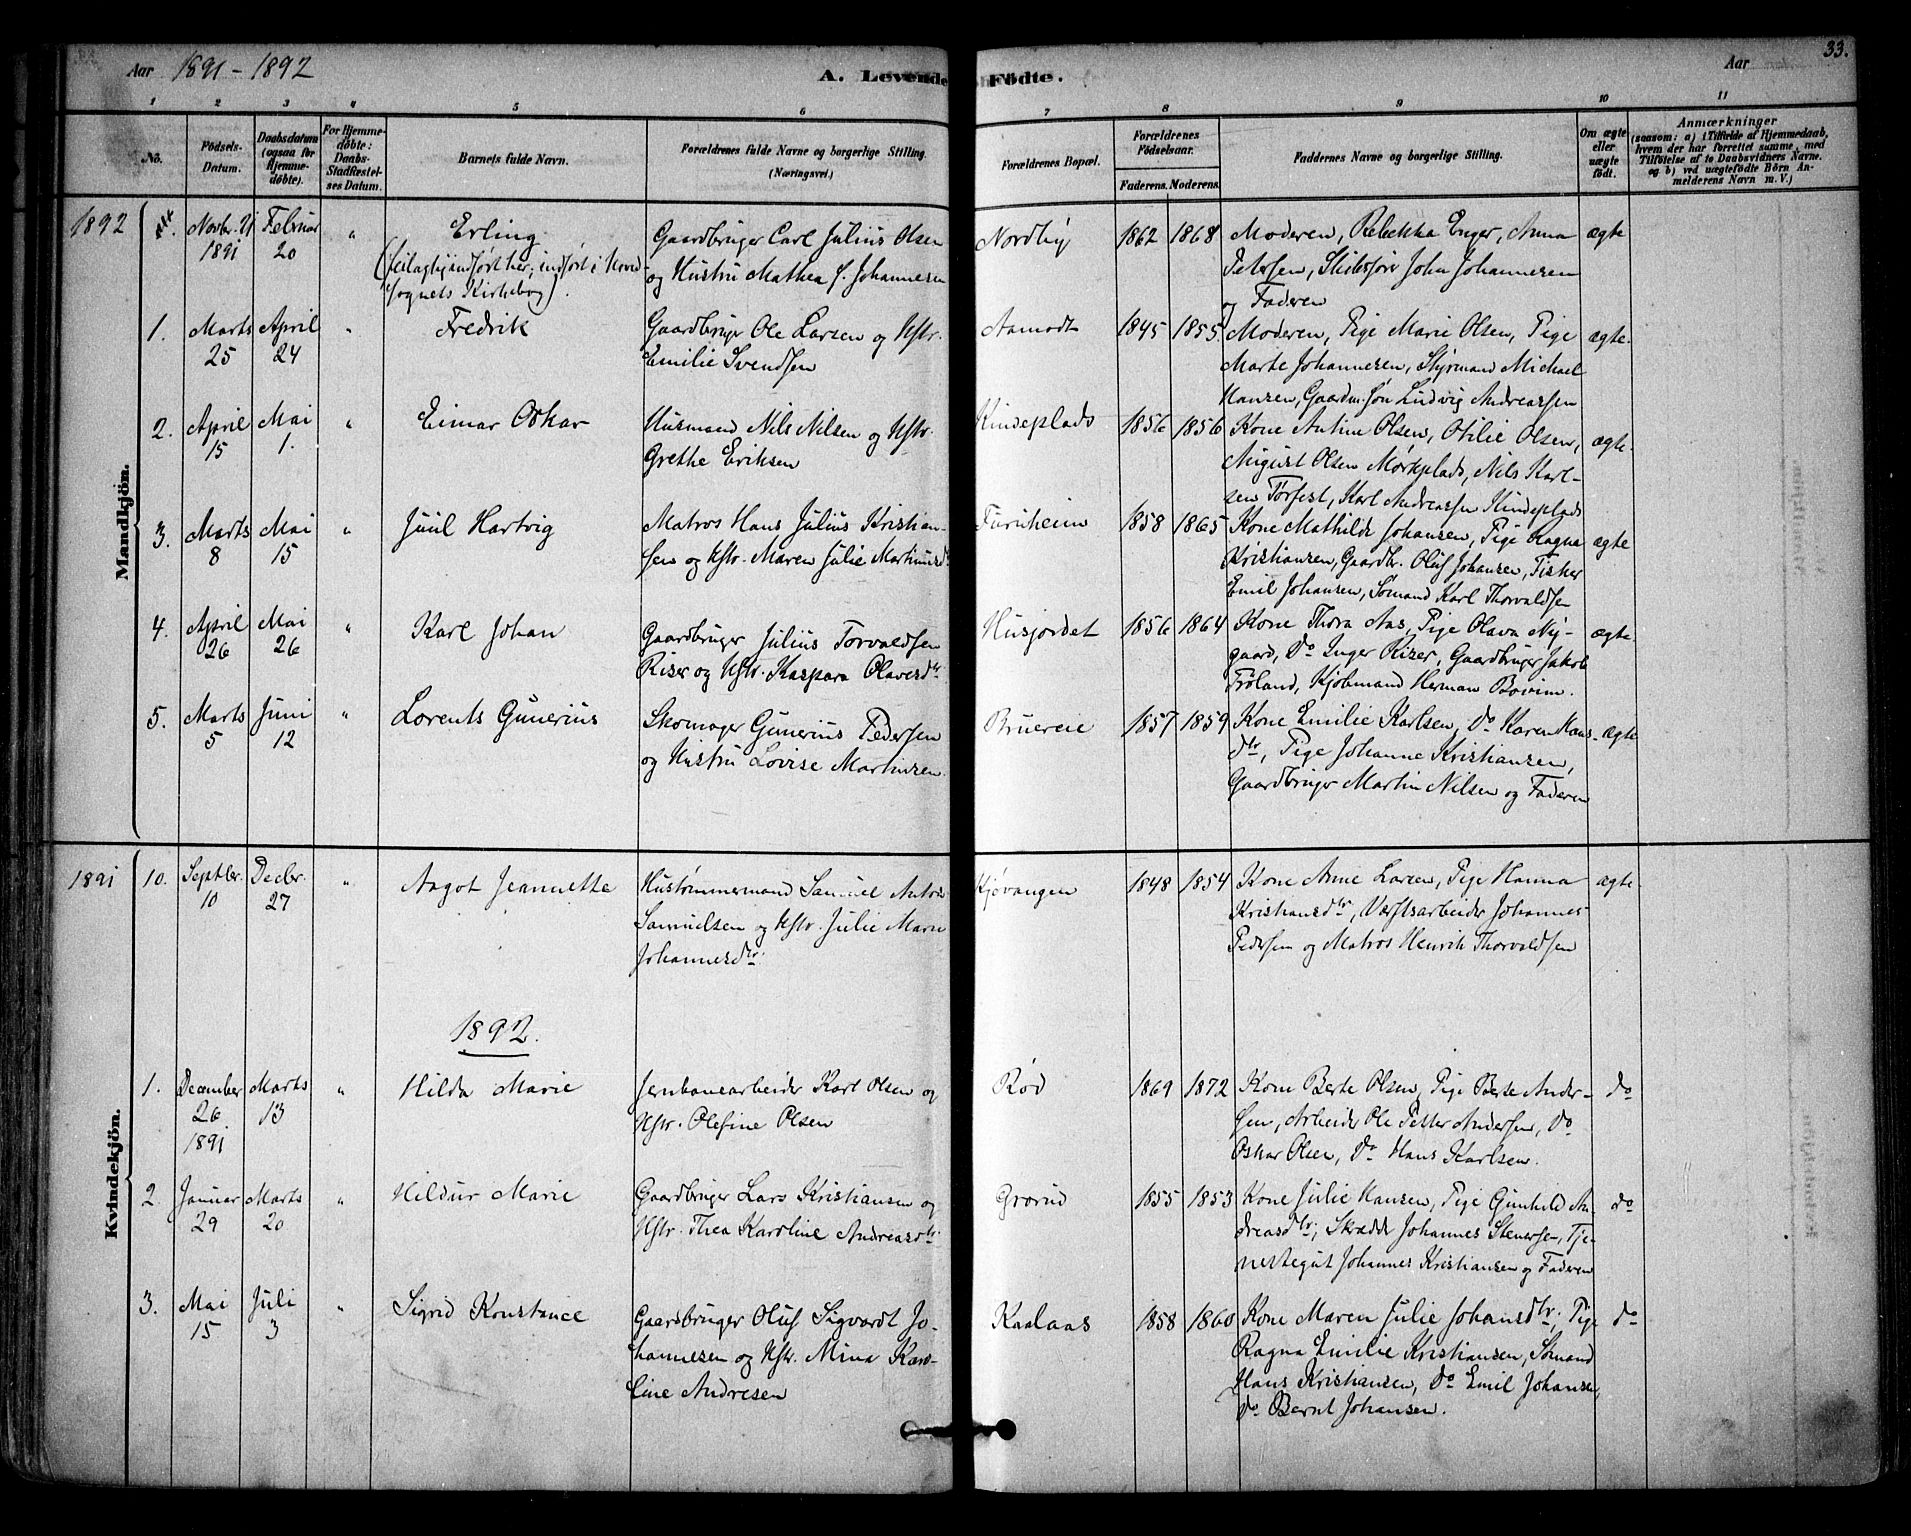 Aar 1891 - 1892
A. Levende Födte.
Aar
33.
1 2 3 4 5 6 7 8 9 10 11
No.
Födsels-
Datum.
Daabsdatum
(ogsaa for
Hjemme-
döbte).
For Hjemme-
döbte:
Daabs-
Stadfæstel-
ses Datum.
Barnets fulde Navn.
Forældrenes fulde Navne og borgerlige Stilling.
(Næringsvei.)
Forældrenes Bopæl.
Forældrenes
Födselsaar.
Faderens. Moderens.
Faddernes Navne og borgerlige Stilling.
Om ægte
eller
uægte
födt.
Anmærkninger
(saasom: a) i Tilfælde af Hjemmedaab,
hvem der har forrettet samme, med
Tilföielse af to Daabsvidners Navne.
og b) ved uægtefödte Börn An-
melderens Navn m. V.)
Mandkjön.
1892
Novbr. 21
1891
Februar
20
"
Erling
(feilagtig indført her, indført i Hoved-
sognets Kirkebog).
Gaardbruger Carl Julius Olsen
og Hustru Mathea f. Johannesen
Nordby
1862
1868
Moderen, Rebekka Enger, Anna
Petersen, Skibsfører John Johannesen
og Faderen
ægte
1.
Marts
25
April
24
"
Fredrik
Gaardbruger Ole Larsen og Hstr.
Emilie Svendsen
Aamodt
1845
1855
Moderen, Pige Marie Olsen, Pige
Marte Johannesen, Styrmand Michael
Hansen, Gaardm. Søn Ludvig Andreassen
ægte.
2.
April
15
Mai
1.
"
Eimar Oskar
Husmand Nils Nilsen og Hstr.
Grethe Eriksen
Kindeplads
1856
1856
Kone Antine Olsen, Otilie Olsen,
August Olsen Mørkeplads, Nils Karl-
sen Torfest, Karl Andreassen Kindeplads
ægte.
3.
Marts
8
Mai
15
"
Juul Hartvig
Matros Hans Julius Kristian-
sen og Hstr. Maren Julie Martinusd
Furuheim
1858
1865
Kone Mathilde Johansen, Pige Ragna
Kristiansen, Gaardbr. Oluf Johansen, Fisker
Emil Johansen, Sømand Karl Thorvaldsen
ægte
4.
April
26
Mai
26
"
Karl Johan
Gaardbruger Julius Torvaldsen
Riser og Hstr. Kaspara Olavesdtr
Husjordet
1856
1864
Kone Thora Aas, Pige Olava Ny-
gaard, Do Inger Riser, Gaardbruger Jakob
Frøland, Kjøbmand Herman Bovim.
ægte
5.
Marts
5
Juni
12
"
Lorents Gunerius
Skomager Gunerius Pedersen
og Hustru Lovise Martinsen.
Bruereie
1857
1859
Kone Emilie Karlsen, Do Karen Hans-
dtr, Pige Johanne Kristiansen,
Gaardbruger Martin Nilsen og Faderen
ægte
Kvindekjön.
1891
10.
Septbr.
10
Decbr.
27
"
Aagot Jeannette
Hustømmermand Samuel Anton
Samuelsen og Hstr. Julie Marie
Johannesdtr.
Kjøvangen
1848
1854
Kone Anne Larsen, Pige Hanna
Kristiansdtr, Værftsarbeider Johannes
Pedersen og Matros Henrik Thorvaldsen
ægte
1892.
1.
December
26
1891
Marts
13
"
Hilda Marie
Jernbanearbeider Karl Olsen og
Hstr. Olefine Olsen
Rød
1869
1872
Kone Berte Olsen, Pige Berte Ander-
sen, Arbeider Ole Petter Andersen, Do
Oskar Olsen, Do Hans Karlsen.
do
2
Januar
29
Marts
20
"
Hildur Marie
Gaardbruger Lars Kristiansen og
Hstr. Thea Karoline Andreasdtr.
Grorud
1855
1853
Kone Julie Hansen, Pige Gunhild An-
dreasdtr, Skrædder Johannes Stenersen, Tje-
nestegut Johannes Kristiansen og Faderen
do
3.
Mai
15
Juli
3
"
Sigrid Konstance
Gaardbruger Oluf Sigvardt Jo-
hannesen og Hstr. Mina Karo-
line Andresen
Kaalaas
1858
1860
Kone Maren Julie Johansdtr, Pige
Ragna Emilie Kristiansen, Sømand
Hans Kristiansen, Do Emil Johansen,
Do Bernt Johansen.
do